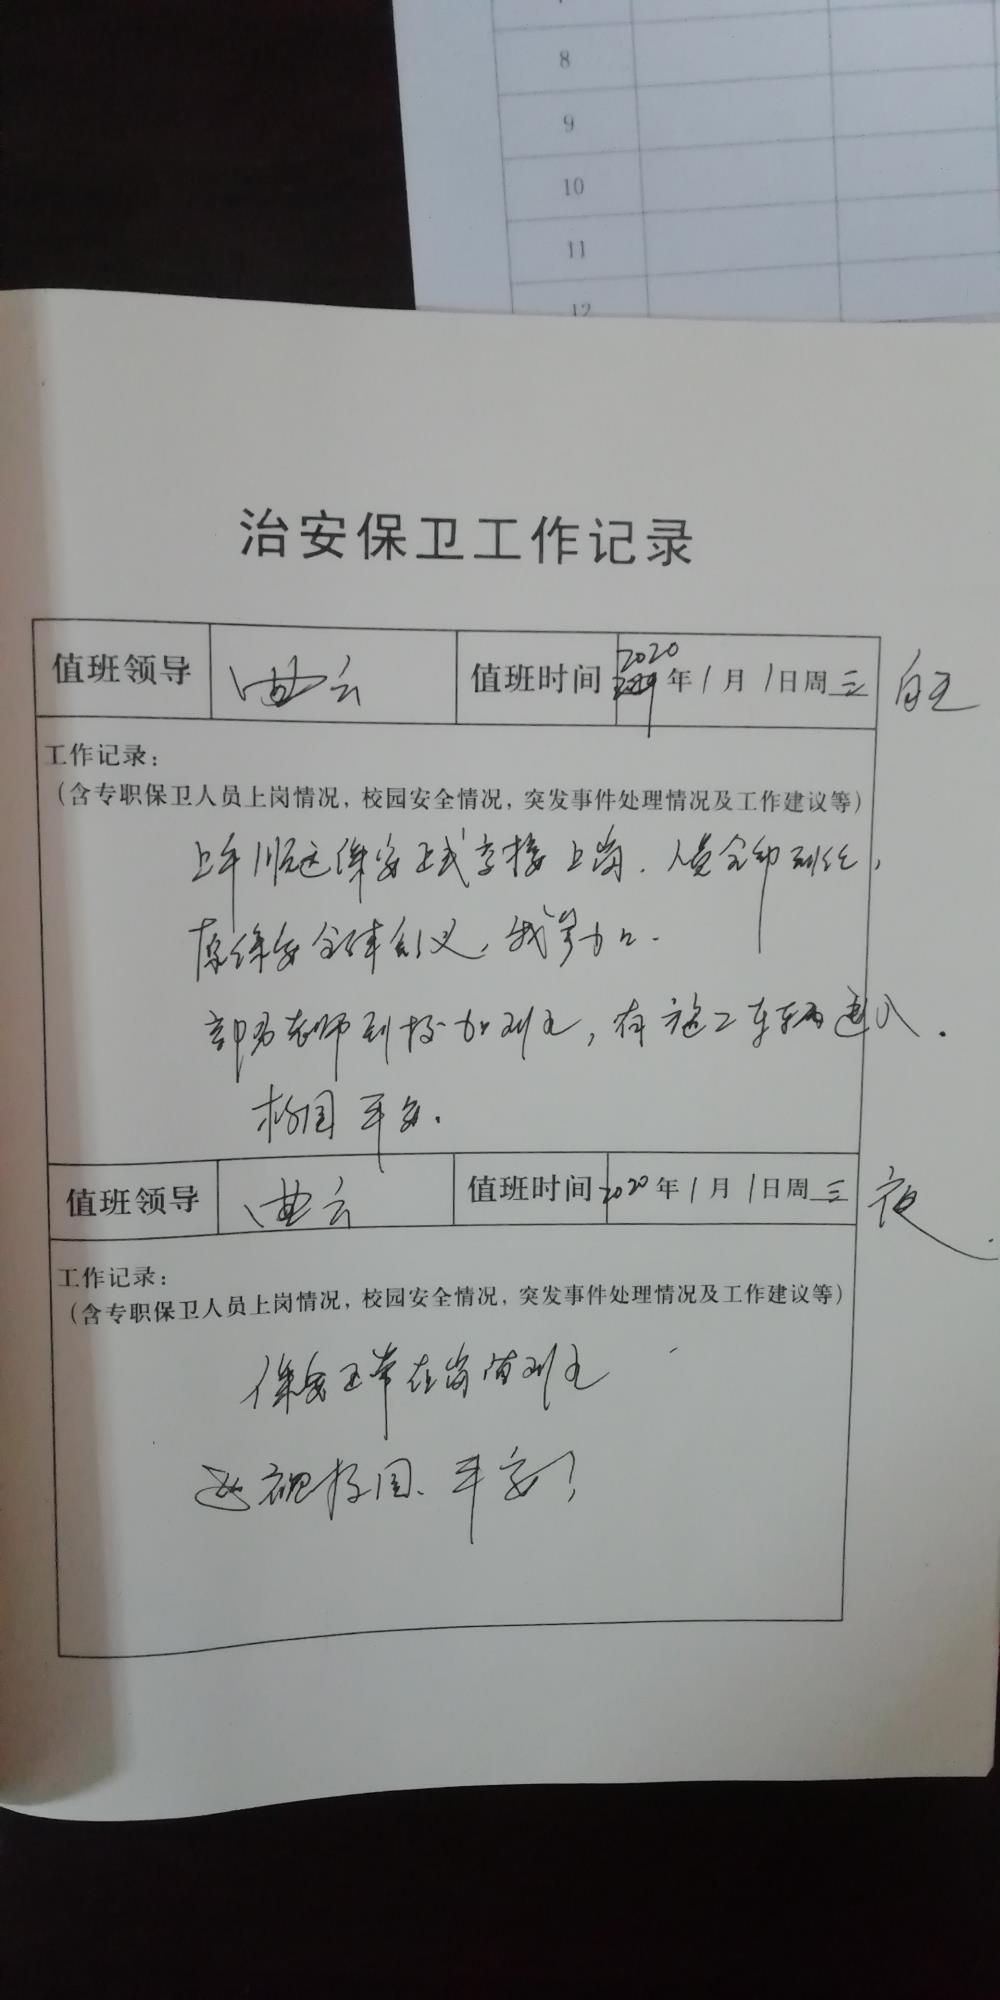 8
9
10
11
12
治安保卫工作记录
值班领导 曲云 值班时间 2020年1月1日周三 白
工作记录：
（含专职保卫人员上岗情况，校园安全情况，突发事件处理情况及工作建议等）
上午顺达保安正式交接上岗．人员全部到位，
原保安全体
部分老师到校加班，有施工车辆进入．
校园平安．
值班领导 曲云 值班时间 2020年1月1日周三 夜
工作记录：
（含专职保卫人员上岗情况，校园安全情况，突发事件处理情况及工作建议等）
保安正常在岗值班
巡视校园、平安！